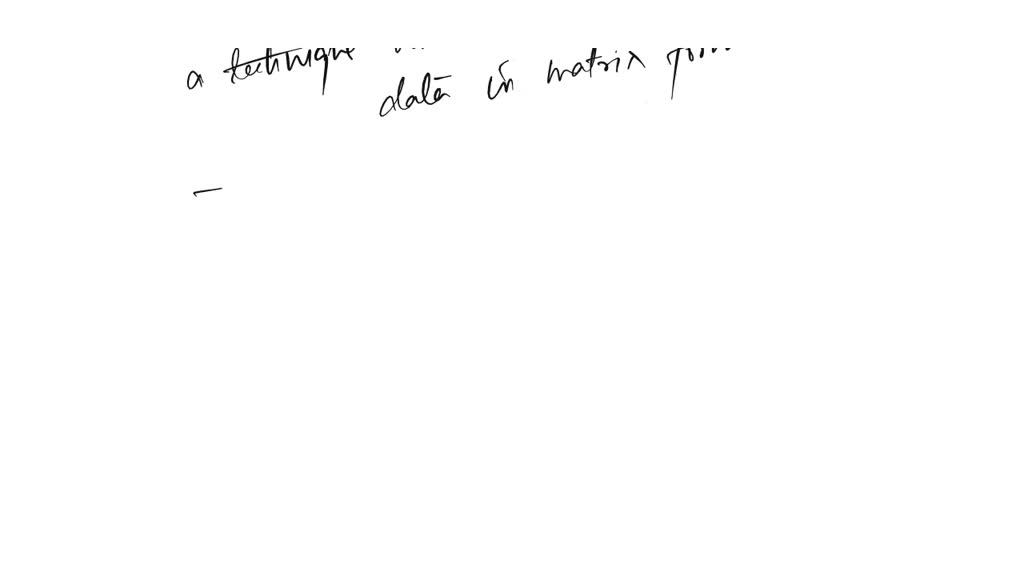 a technique
data in matrix form